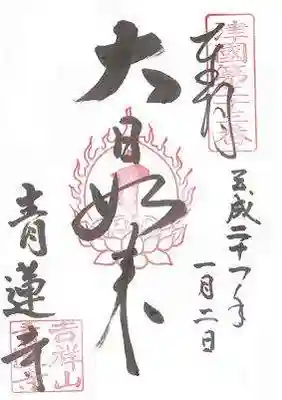 奉拝
摂国第十三番
平成二十一年
一月二日
大日如来
青蓮寺
吉祥山
青蓮寺